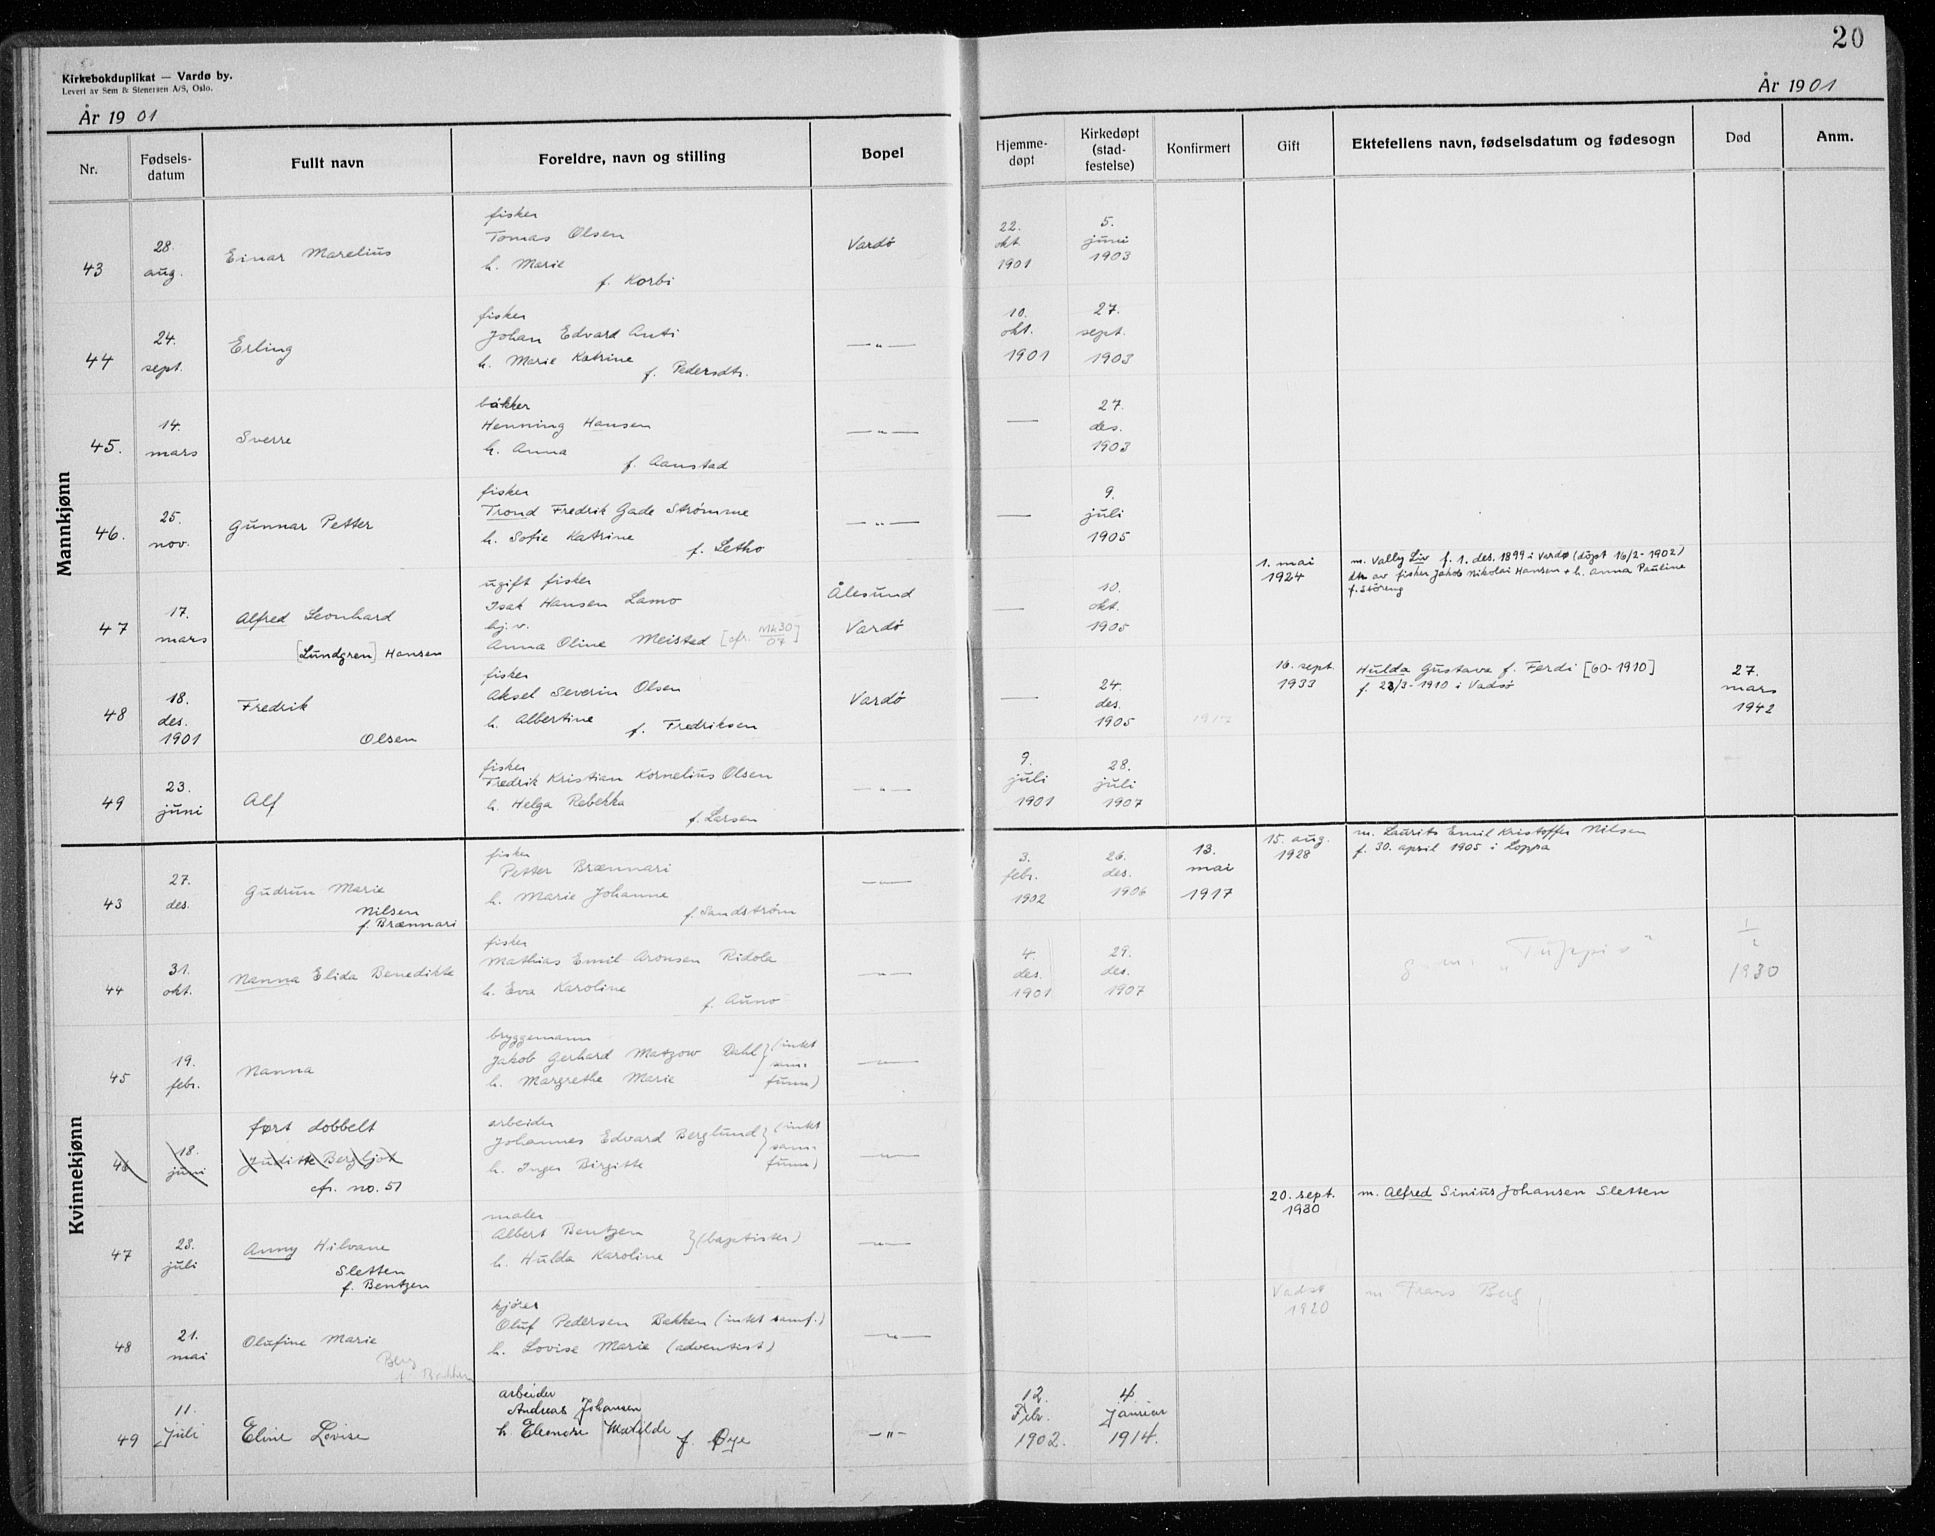 20
Kirkebokduplikat — Vardø by.
Levert av Sem & Stenersen A/S, Oslo.
År 1901
År 1901
Nr.
Fødsels-
datum
Fullt navn
Foreldre, navn og stilling
Bopel
Hjemme-
døpt
Kirkedøpt
(stad-
festelse)
Konfirmert
Gift
Ektefellens navn, fødselsdatum og fødesogn
Død
Anm.
Mannkjønn
43
28.
aug.
Einar Marelius
fisker
Tomas Olsen
h. Marie
f. Korbi
Vardø
22.
okt
1901
5.
juni
1903
44
24.
sept.
Erling
fisker
Johan Edvard Anti
h. Marie Katrine
f. Pedersdtr.
— " —
10.
okt.
1901
27.
sept.
1903
45.
14.
mars
Sverre
bakker
Henning Hansen
h. Anna
f. Aanstad
— " —
—
27.
des.
1903
46.
25.
nov.
Gunnar Petter
fisker
Trond Fredrik Gade Strømme
h. Sofie Katrine
f. Letho
— " —
—
9.
juli
1905
47
17.
mars
Alfred Leonhard
[Lundgren] Hansen
ugift fisker
Isak Hansen Lamo
hj. v.
Anna Oline Meistad [cfr. Mk30/07]
Ålesund
Vardø
—
10.
okt.
1905
1. mai
1924
m. Valby Liv f. 1. des. 1899 i Vardø (døpt 16/2-1902)
dtr av fisker Jakob Nikolai Hansen + h. Anna Pauline
f. Støreng
48
18.
des.
1901
Fredrik
Olsen
fisker
Aksel Severin Olsen
h. Albertine
f. Fredriksen
Vardø
—
24.
des.
1905
1917
16. sept.
1933
Hulda Gustava f. Ferdi [60-1910]
f. 23/3-1910 i Vadsø
27.
mars
1942
49
23.
juni
Alf
fisker
Fredrik Kristian Kornelius Olsen
h. Helga Rebekka
f. Larsen
— " —
7.
juli
1901
28.
juli
1907
Kvinnekjønn
43
27.
des.
Gudrun Marie
Nilsen
f. Brænnari
fisker
Petter Brænnari
h. Marie Johanne
f. Sandstrøm
— " —
3.
febr.
1902
26.
des.
1906
13.
mai
1917
15. aug.
1928
m. Laurits Emil Kristoffer Nilsen
f. 30. april 1905 i Loppa
44
31.
okt.
Nanna Elida Benedikte
fisker
Mathias Emil Aronsen Ridola
h. Eva Karoline
f. Auno
— " —
4.
des.
1901
29.
des.
1907
1930
45
19.
febr.
Nanna
bryggemann
Jakob Gerhard Matzow Dahl } (intet
h. Margrethe Marie sam-
funn)
— " —
46
18.
juni
ført dobbelt
Judithe Bergljot
cfr. no. 51
arbeider
Johannes Edvard Berglund } (intet
h. Inger Birgitte sam-
funn)
— " —
47
23.
juli
Anny Hilvane
Sletten
f. Bentzen
maler
Albert Bentzen
h. Hulda Karoline } (baptister)
— " —
20. sept.
1930
m. Alfred Sinius Johansen Sletten
48
21.
mai
Olufine Marie
Berg
f. Bakken
kjører
Oluf Pedersen Bakken (intet samf.)
h. Lovise Marie (adventist)
— " —
Vadsø
1920
m Frans Berg
49
11.
Juli
Eline Lovise
arbeider
Andreas Johansen
h Eleonore Matilde f. Øye
— " —
12
Febr.
1902.
4.
Januar
1914.